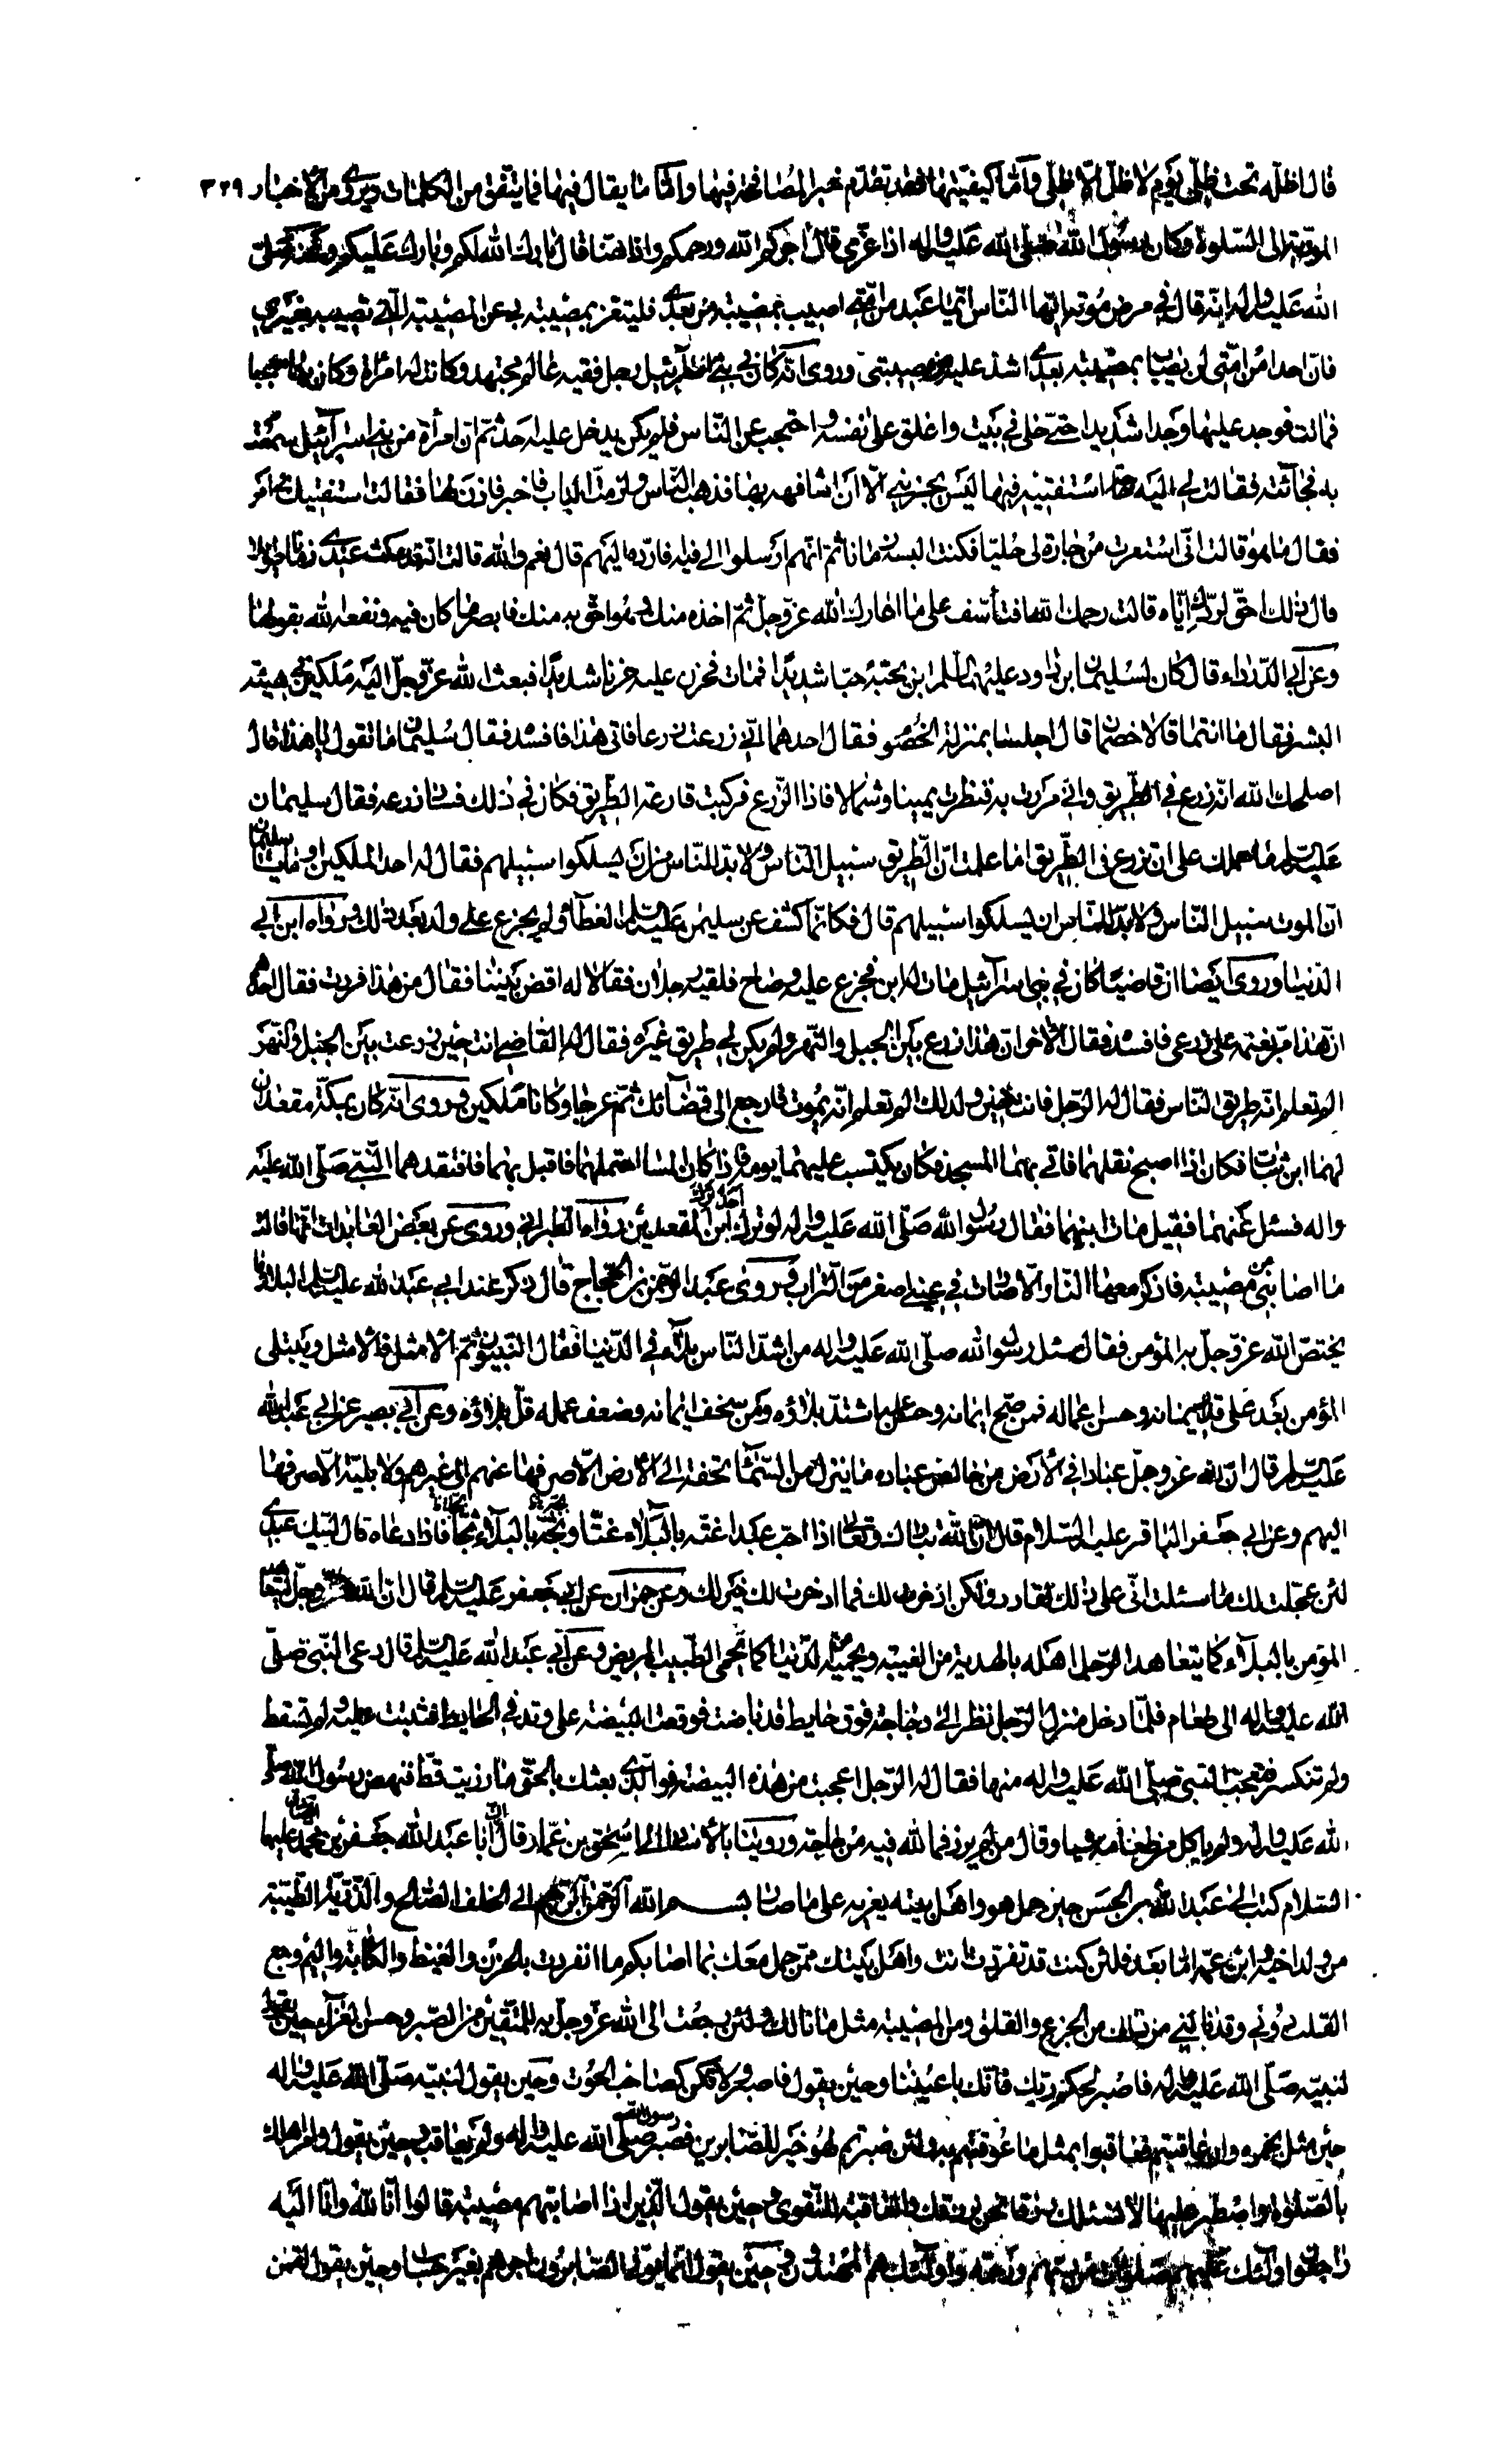 قال اظله تحت ظلّي يوم لا ظلّ الّا ظلّي وامّا كيفيّتها فقد تقدّم خبر المصافحة فيها وامّا ما يقال فيها فما يتفق من الكلمات ويروى من الأخبار ٣٢٩
المؤدّية الى السّلوة وكان رسول الله صلّى الله عليه واله اذا عزّى قال اجركم الله ورحمكم واذا هنّا قال بارك الله لكم وبارك عليكم وعنه صلّى
الله عليه واله انّه قال في مرض موته ايّها النّاس ايّما عبد من امّتي اصيب بمصيبة من بعدي فليتعزّ بمصيبته بي عن المصيبة الّتي تصيبه بغيري
فانّ احدا من امّتي لن يصاب بمصيبة بعدي اشدّ عليه من مصيبتي وروى انّه كان في بني اسرآئيل رجل فقيه عالم مجتهد وكانت له امرأة وكان بها معجبا
فماتت فوجد عليها وجدا شديدا حتّى خلى في بيت واغلق على نفسه واحتجب عن النّاس فلم يكن يدخل عليه احد ثمّ ان امرأة من بني اسرآئيل سمعت
به فجآئته فقالت لي اليه حاجة استفتيه فيها ليس يجزيني الّا ان اشافهه بها فذهب النّاس ولزمت الباب فاخبر فاذن لها فقالت استفتيك في امر
فقال ما هو قالت انّي استعرت من جارة لي حليّا فكنت البسه زمانا ثمّ انّهم ارسلوا الي فيه فاردّه اليهم قال نعم والله قالت انّه قد مكث عندي زمانا طويلا
قال ذلك احقّ لردّك ايّاه قالت رحمك الله افتأسّف على ما اعارك الله عزّ وجلّ ثمّ اخذه منك وهو احقّ به منك فابصر ما كان فيه ونفعه الله بقولها
وعن ابي الدّرداء قال كان لسليمان ابن داود عليهما السّلم ابن يحبّه حبّا شديدا فمات فحزن عليه حزنا شديدا فبعث الله عزّ وجلّ اليه ملكين في هيئة
البشر فقال ما انتما قالا خصمان قال اجلسا بمنزلة الخصوم فقال احدهما انّي زرعت زرعا فاتى هذا فافسده فقال سليمان ما تقول يا هذا قال
اصلحك الله انّه زرع في الطّريق وانّي مررت به فنظرت يمينا وشمالا فاذا الزّرع فركبت قارعة الطّريق فكان في ذلك فساد زرعه فقال سليمان
عليه السّلم ما حملك على ان تزرع في الطّريق اما علمت انّ الطّريق سبيل النّاس ولا بدّ للنّاس من ان يسلكوا سبيلهم فقال له احد الملكين او ما علمت يا سليمان
انّ الموت سبيل النّاس ولا بدّ للنّاس ان يسلكوا سبيلهم قال فكانّما كشف عن سليمن عليه السّلم الغطآء ولم يجزع على ولد بعد ذلك ورواه ابن ابي
الدّنيا وروى ايضا ان قاضيا كان في بني اسرآئيل مات له ابن فجزع عليه وصاح فلقيه رجلان فقالا له اقض بيننا فقال من هذا فررت فقال احدهما
انّ هذا مرّ بغنمه على زرعي فافسده فقال الاخر ان هذا زرع بين الجبل والنّهر ولم يكن لي طريق غيره فقال له القاضي انت حين زرعت بين الجبل والنّهر
الم تعلم انّه طريق النّاس فقال له الرّجل فانت حين ولد لك الم تعلم انّه يموت فارجع الى قضائك ثمّ عرجا وكانا ملكين وروى انّه كان بمكّة مقعدان
لهما ابن شابّ فكان اذا اصبح نقلهما فاتى بهما المسجد فكان يكتسب عليهما يومه فاذا كان المسا احتملهما فاقبل بهما فافتقدهما النّبيّ صلّى الله عليه
واله فسئل عنهما فقيل مات ابنهما فقال رسول الله صلّى الله عليه واله لو ترك احد لترك ابن المقعدين رواه الطبراني وروى عن بعض العابدات انّها قالت
ما اصابتني من مصيبة فاذكر معها النّار الّا صارت في عيني اصغر من التّراب وروى عبد الرّحمن بن الحجّاج قال ذكر عند ابي عبد الله عليه السّلم البلاء وما
يختصّ الله عزّ وجلّ به المؤمن فقال سئل رسول الله صلّى الله عليه واله من اشدّ النّاس بلاء في الدّنيا فقال النّبيّون ثمّ الأمثل فالأمثل ويبتلى
المؤمن بعد على قدر ايمانه وحسن اعماله فمن صحّ ايمانه وحسن عمله اشتدّ بلاؤه ومن سخف ايمانه وضعف عمله قلّ بلاؤه وعن ابي بصير عن ابي عبد الله
عليه السّلم قال انّ لله عزّ وجلّ عبادا في الأرض من خالص عباده ما ينزل من السّمآء تحفة الى الأرض الّا صرفها عنهم الى غيرهم ولا بليّة الّا صرفها
اليهم وعن ابي جعفر الباقر عليه السّلام قال انّ الله تبارك وتعالى اذا احبّ عبدا غتّه بالبلآء غتّا وثجّه بالبلآء ثجّا فاذا دعاه قال لبّيك عبدي
لئن عجّلت لك ما سئلت انّي على ذلك لقادر ولكن ادّخرت لك فما ادّخرت لك خير لك وعن حمران عن ابي جعفر عليه السّلم قال ان الله عزّ وجلّ ليتعاهد
المؤمن بالبلآء كما يتعاهد الرّجل اهله بالهدية من الغيبة ويحميه الدّنيا كما يحمي الطّبيب المريض وعن ابي عبد الله عليه السّلم قال دعى النّبيّ صلّى
الله عليه واله الى طعام فلمّا دخل منزل الرّجل نظر الى دجاجة فوق حايط قد باضت فوقعت البيضة على وتد في الحايط فثبتت عليه ولم تسقط
ولم تنكسر فتعجّب النّبي صلّى الله عليه واله منها فقال له الرّجل اعجبت من هذه البيضة فوالّذي بعثك بالحقّ ما رزيت قطّ فنهض رسول الله صلّى
الله عليه واله ولم ياكل من طعامه شيئا وقال من لم يرزء فما لله فيه من حاجة وروينا بالأسناد الى اسحق بن عمّار قال انّ ابا عبد الله جعفر بن محمّد عليهما
السّلام كتب الى عبد الله بن الحسن حين حمل هو واهل بيته يعزيه على ما صار اليه بسم الله الرّحمن الرّحيم الى الخلف الصّالح والذّرّيّة الطّيّبة
من ولد اخيه وابن عمّه امّا بعد فلئن كنت قد تفرّدت انت واهل بيتك ممّن حمل معك بما اصابكم ما انفردت بالحزن والغيظ والكابة واليم وجع
القلب دوني وقد نالني من ذلك من الجزع والقلق ومن المصيبة مثل ما نالك ولكن رجعت الى الله عزّ وجلّ به المتّقين من الصّبر وحسن العزآء حين يقول
لنبيّه صلّى الله عليه واله فاصبر لحكم ربّك فانّك باعيننا وحين يقول فاصبر ولا تكن كصاحب الحوت وحين يقول لنبيّه صلّى الله عليه واله
حين مثّل بحمزه وان عاقبتم فعاقبوا بمثل ما عوقبتم به ولئن صبرتم لهو خير للصّابرين فصبر رسول الله صلّى الله عليه واله ولم يعاقب وحين يقول وامر اهلك
بالصّلوة واصطبر عليها لا نسئلك رزقا نحن نرزقك والعاقبة للتّقوى وحين يقول الّذين اذا اصابتهم مصيبة قالوا انّا لله وانّا اليه
راجعون اولئك عليهم صلوات من ربّهم ورحمة واولئك هم المهتدون وحين يقول انّما يوفّى الصّابرون اجرهم بغير حساب وحين يقول لقمن